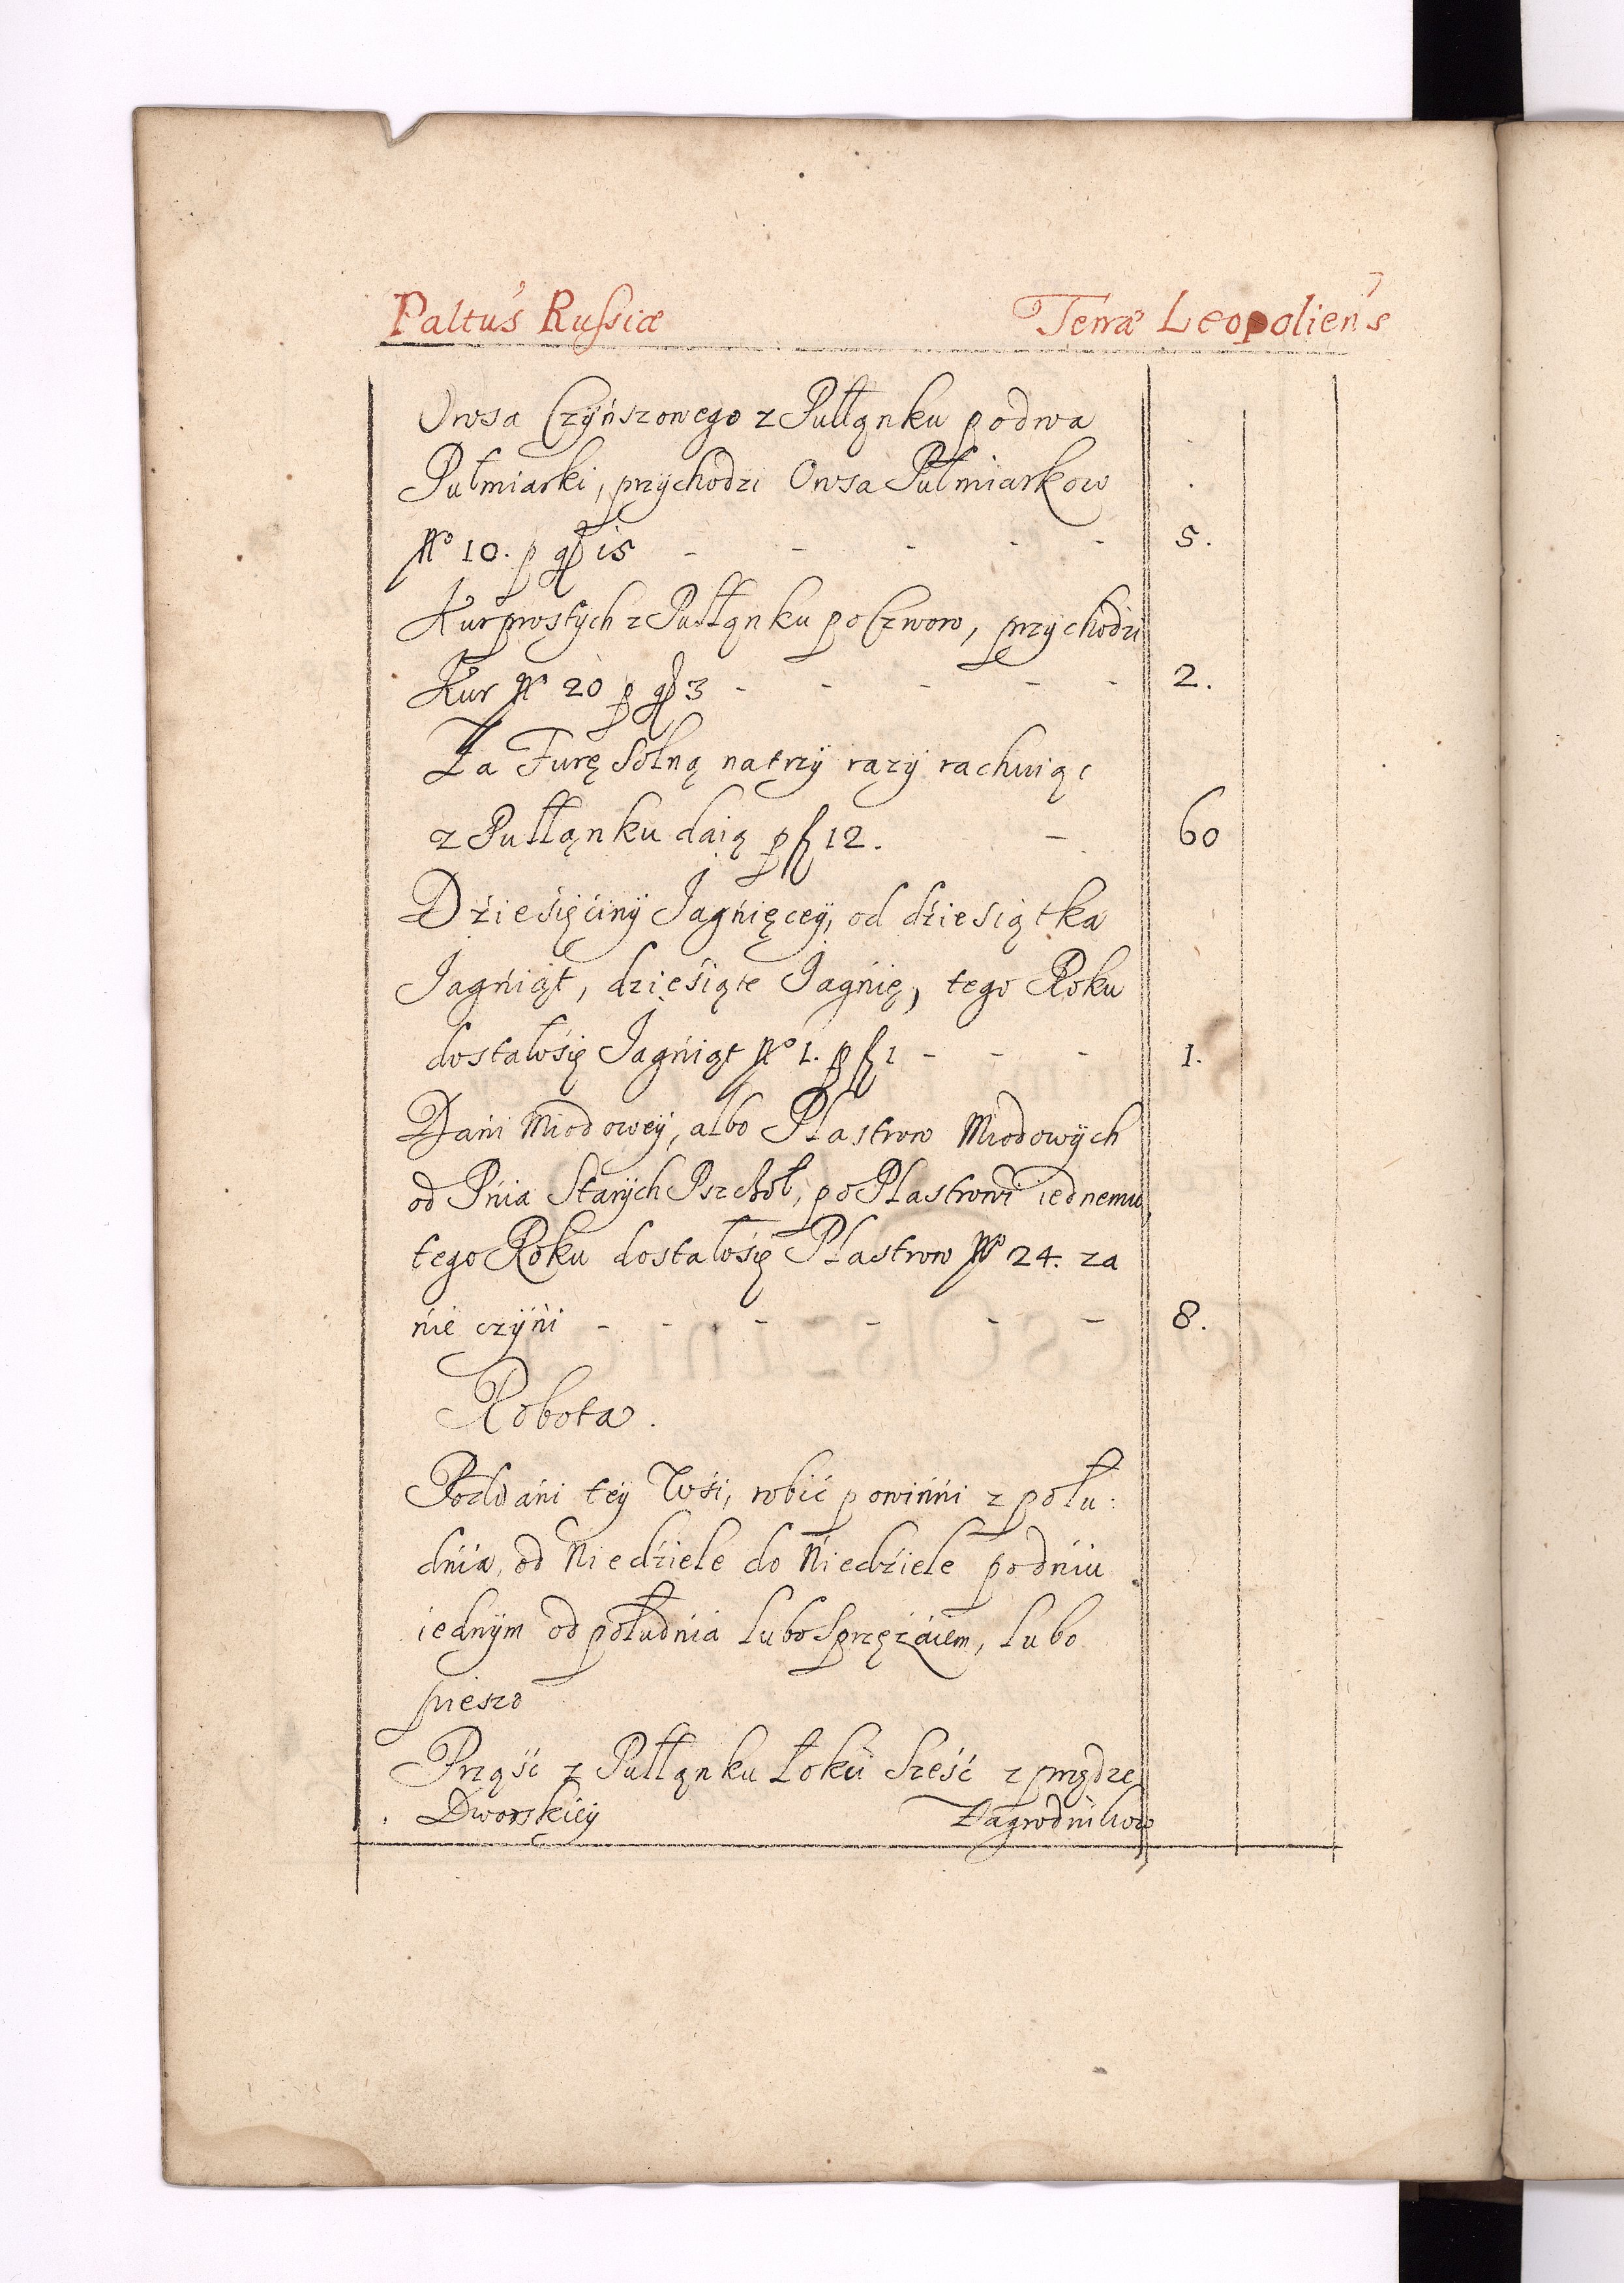 Paltus Russiæ Terræ Leopoliens
Owsa Czÿńszowego z Pułłąnku podwa
Pułmiarki, przychodzi Owsa Pułmiarkow
No 10. p gſ 15 - - - - - 5.
Kur prostych z Pułłąnku po Czworo, przychodzi
Kur No 20 p gſ 3 - - - - - 2.
Za Furę Solną natrzÿ razÿ rachuiąc
z Pułłąnku daią p f 12. - 60
Dźieśięćinÿ Jagńięceÿ, od dźieśiątka
Jagńiąt, dzieśiąte Jagńię, tego Roku
dostałosię Jagńiąt No 1. p f 1 - - - 1.
Dańi Miodoweÿ, albo Plastrow Miodowÿch
od Pńia Starÿch Pszchoł, po Plastrowi iednemu,
tego Roku dostałosię Plastrow No 24. za
ńie czÿńi - - - - - - 8.
Robota.
Poddańi teÿ Wśi, robić powińńi z połu:
dńia, od Niedźiele do Niedźiele podńiu
iednÿm od południa lubo Sprzężaiem, lubo
pieszo
Prząść z Pułłąnku Łokći Sześć z przędze
Dworskieÿ Zagrodnikow